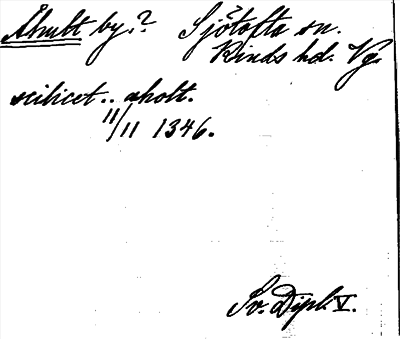 Åhult by.? Sjötofta sn.
Kinds hd. Vg.
scilicet .. aholt.
11/11 1346.
Sv. Dipl. V.